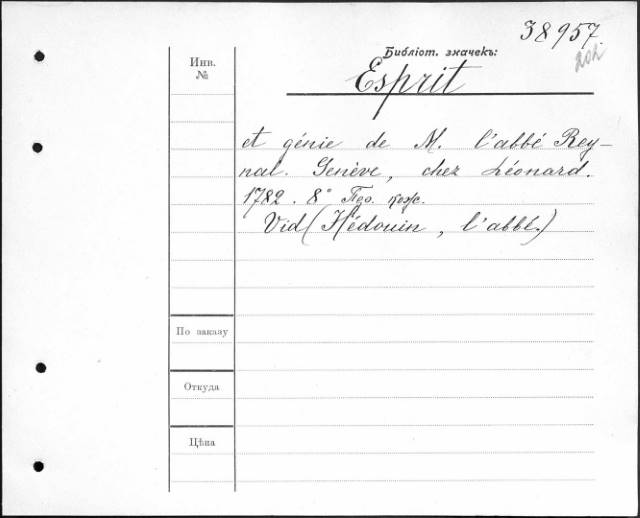 38957
202
Инв.
№
Библіот. значекъ:
Esprit
et génie de M. l'abbé Rey-
nal. Genève, chez Léonard.
1782. 8° Пер. кож.
Vid (Hédouin, l'abbé.)
По заказу
Откуда
Цѣна